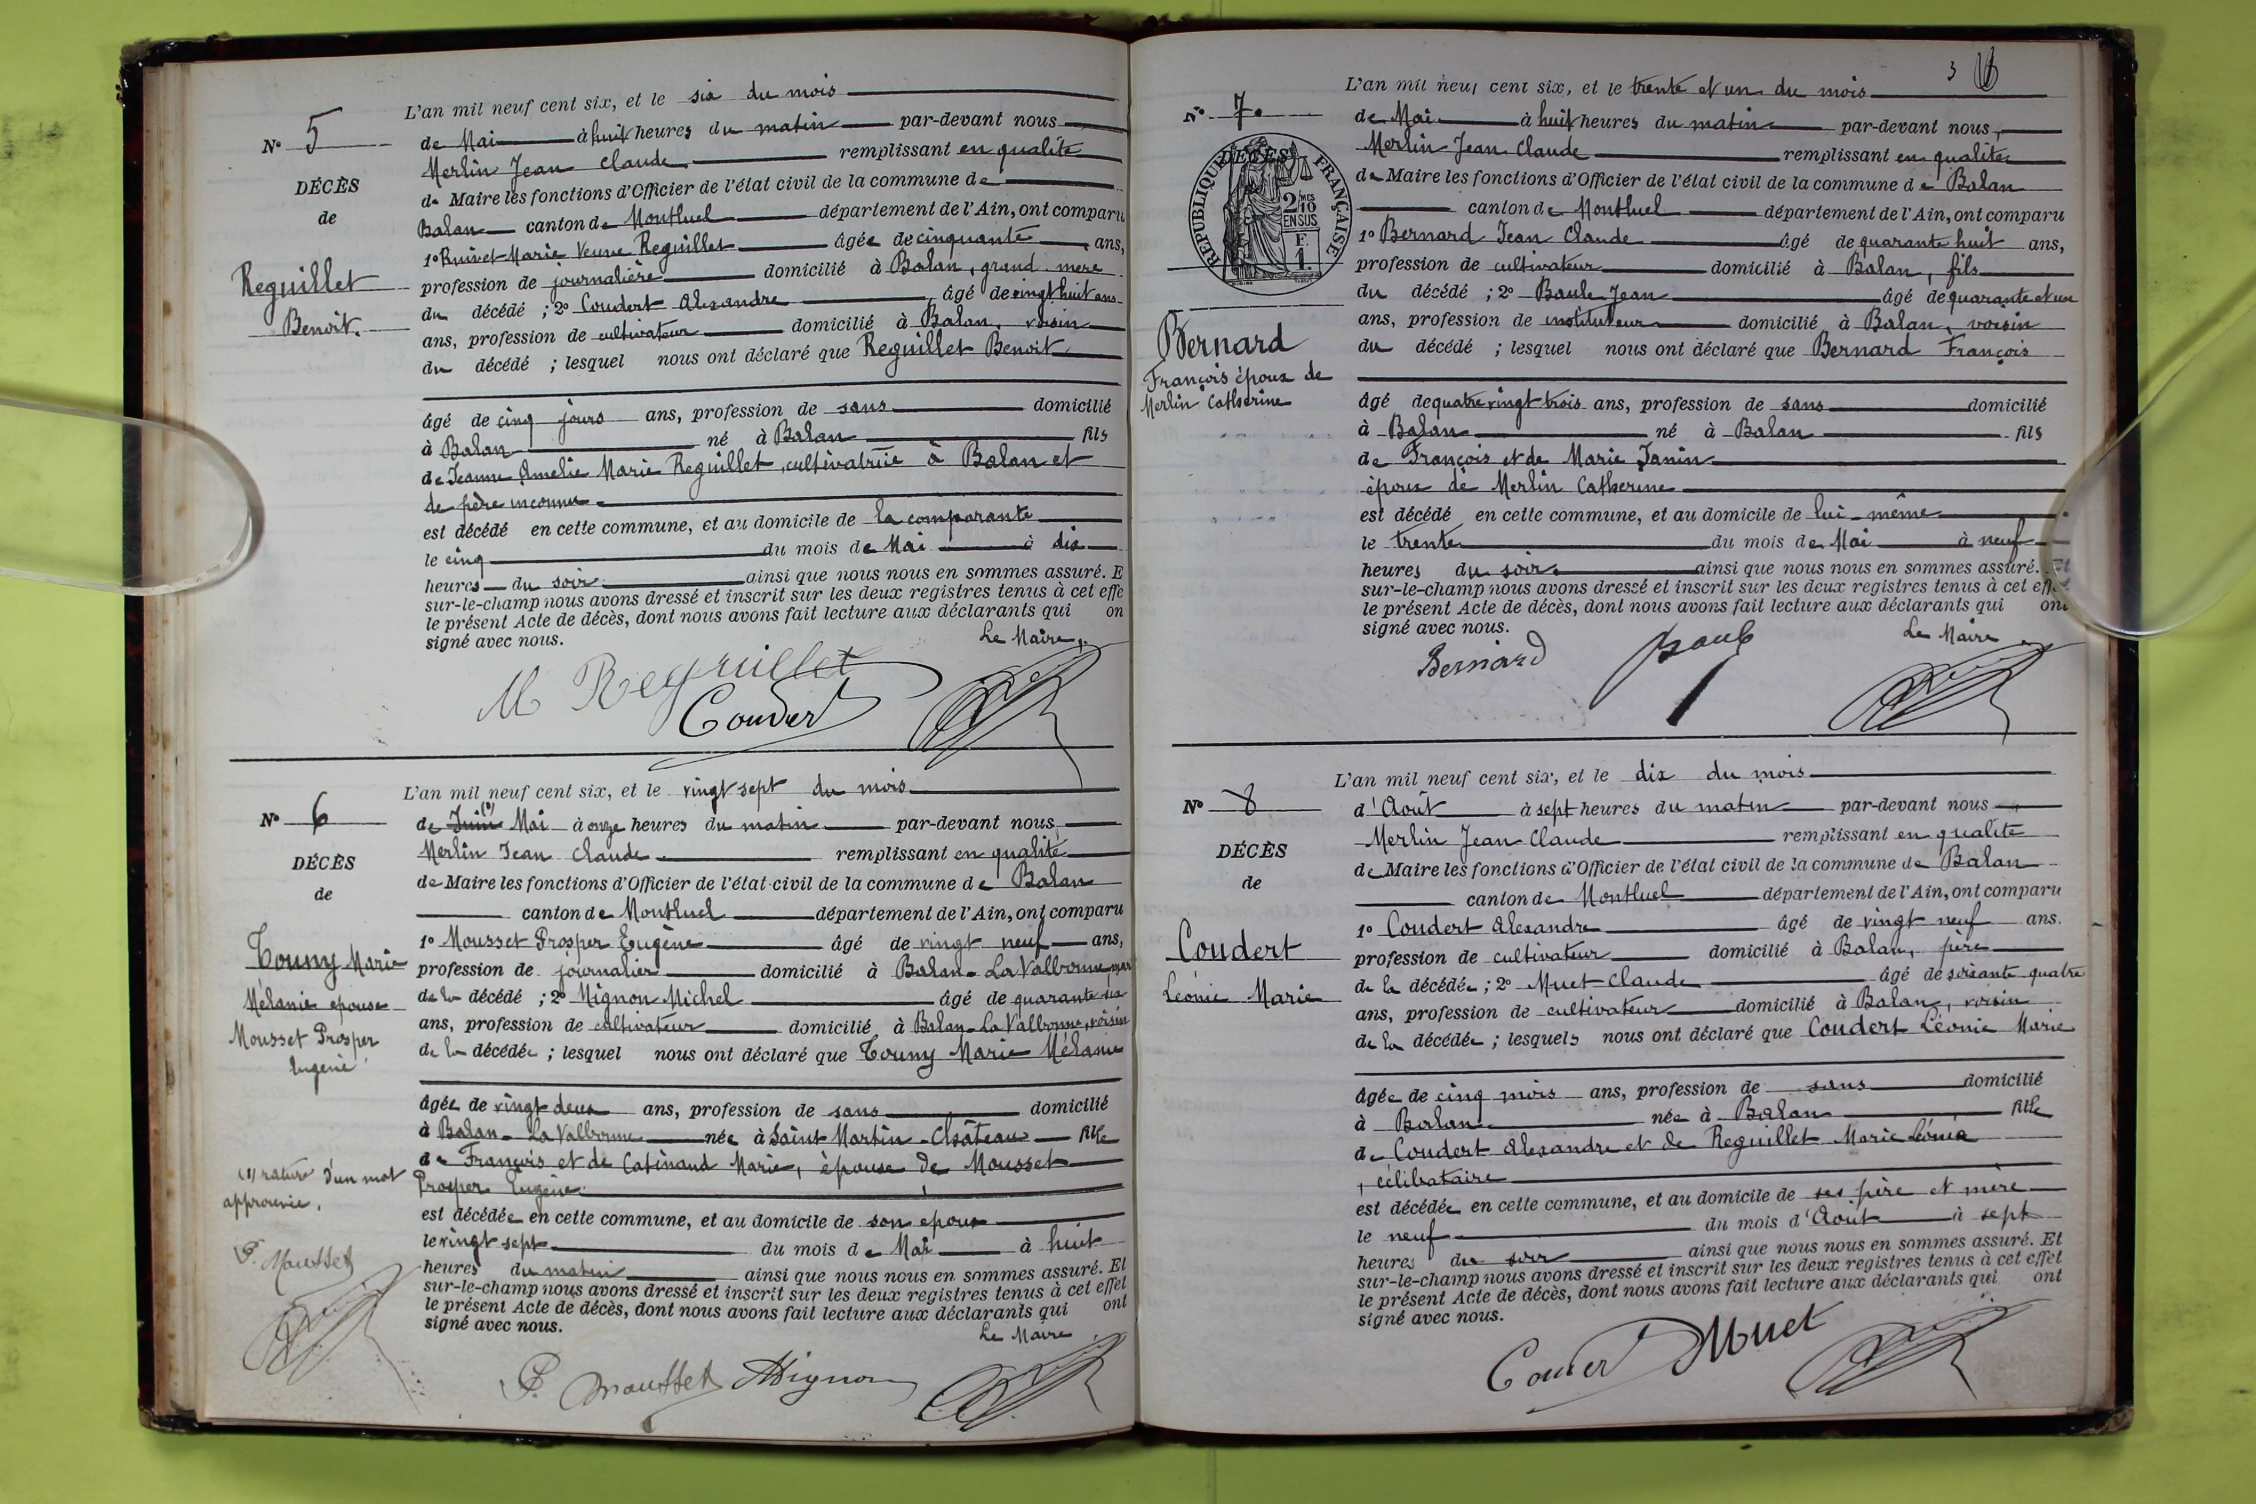 L'an mil neuf cent six, et le six du mois
N° 5
de Mai à huit heures du matin par-devant nous
Merlin Jean Claude remplissant en qualité
DÉCÈS
de
de Maire les fonctions d'Officier de l'état civil de la commune de
Balan canton de Montluel département de l'Ain, ont comparu
1° Marie Veuve Reguillet âgée de cinquante ans,
Reguillet
Benoit.
profession de journalière domicilié à Balan, grand mere
du décédé ; 2° Coudert Alexandre âgé de vingt huit ans
ans, profession de cultivateur domicilié à Balan, voisin
du décédé ; lesquel nous ont déclaré que Reguillet Benoit
âgé de cinq jours ans, profession de sans domicilié
à Balan né à Balan fils
de Jeanne Amelie Marie Reguillet, cultivatrice à Balan et
de père inconnu
est décédé en cette commune, et au domicile de la comparante
le cinq du mois de Mai à dix
heures du soir ainsi que nous nous en sommes assuré. E
sur-le-champ nous avons dressé et inscrit sur les deux registres tenus à cet effe
le présent Acte de décès, dont nous avons fait lecture aux déclarants qui on
signé avec nous. Le Maire,
M Reguillet
Coudert
L'an mil neuf cent six, et le vingt sept du mois
N° 6
de Juin (1) Mai à onze heures du matin par-devant nous
Merlin Jean Claude remplissant en qualité
DÉCÈS
de
de Maire les fonctions d'Officier de l'état civil de la commune de Balan
canton de Montluel département de l'Ain, ont comparu
1° Mousset Prosper Eugène âgé de vingt neuf ans,
Touny Marie
Mélanie epouse
Mousset Prosper
Eugène
profession de journalier domicilié à Balan - La Valbonne mari
de la décédé ; 2° Mignon Michel âgé de quarante six
ans, profession de cultivateur domicilié à Balan - La Valbonne, voisin
de la décédée ; lesquel nous ont déclaré que Touny Marie Mélanie
âgée de vingt deux ans, profession de sans domicilié
à Balan - La Valbonne née à Saint Martin - Château fille
de François et de Catinaud Marie, épouse de Mousset
Prosper Eugène.
(1) rature d'un mot
approuvée.
est décédée en cette commune, et au domicile de son epoux
le vingt sept du mois de Mai à huit
heures du matin ainsi que nous nous en sommes assuré. Et
sur-le-champ nous avons dressé et inscrit sur les deux registres tenus à cet effet
le présent Acte de décès, dont nous avons fait lecture aux déclarants qui ont
signé avec nous. Le Maire
P. Mousset
P. Mousset Mignon
3
L'an mil neuf cent six, et le trente et un du mois
N° 7.
de Mai à huit heures du matin par-devant nous,
Merlin Jean Claude remplissant en qualité
DÉCÈS
RÉPUBLIQUE FRANÇAISE
2 10
EN SUS
F.
1.
de Maire les fonctions d'Officier de l'état civil de la commune de Balan
canton de Montluel département de l'Ain, ont comparu
1° Bernard Jean Claude âgé de quarante huit ans,
profession de cultivateur domicilié à Balan, fils
du décédé ; 2° Baule Jean âgé de quarante et un
ans, profession de instituteur domicilié à Balan, voisin
du décédé ; lesquel nous ont déclaré que Bernard François
Bernard
François époux de
Merlin Catherine
âgé de quatre vingt trois ans, profession de sans domicilié
à Balan né à Balan fils
de François et de Marie Janin
époux de Merlin Catherine
est décédé en cette commune, et au domicile de lui-même
le trente du mois de Mai à neuf
heures du soir. ainsi que nous nous en sommes assuré. Et
sur-le-champ nous avons dressé et inscrit sur les deux registres tenus à cet effet
le présent Acte de décès, dont nous avons fait lecture aux déclarants qui ont
signé avec nous. Le Maire
Bernard Baule
L'an mil neuf cent six, et le dix du mois
N° 8
d'Août à sept heures du matin par-devant nous
Merlin Jean Claude remplissant en qualité
DÉCÈS
de
de Maire les fonctions d'Officier de l'état civil de la commune de Balan
canton de Montluel département de l'Ain, ont comparu
1° Coudert Alexandre âgé de vingt neuf ans.
Coudert
Léonie Marie
profession de cultivateur domicilié à Balan, père
de la décédée ; 2° Muet Claude âgé de soixante quatre
ans, profession de cultivateur domicilié à Balan, voisin
de la décédée ; lesquels nous ont déclaré que Coudert Léonie Marie
âgée de cinq mois ans, profession de sans domicilié
à Balan née à Balan fille
de Coudert Alexandre et de Reguillet Marie Léonia
, célibataire
est décédée en cette commune, et au domicile de ses père et mère
le neuf du mois d'Août à sept
heures du soir ainsi que nous nous en sommes assuré. Et
sur-le-champ nous avons dressé et inscrit sur les deux registres tenus à cet effet
le présent Acte de décès, dont nous avons fait lecture aux déclarants qui ont
signé avec nous.
Coudert Muet